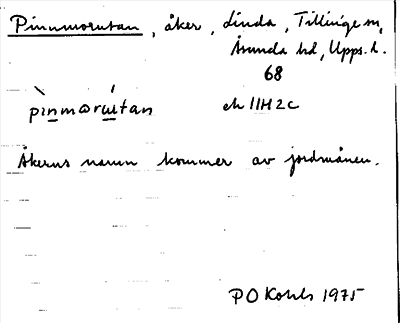 Pinnmorutan, åker, Linda, Tillinge sn,
Åsunda hd, Upps. l.
68
pinmorutan ek 11H2c
Åkerns namn kommer av jordmånen.
PO Kohls 1975